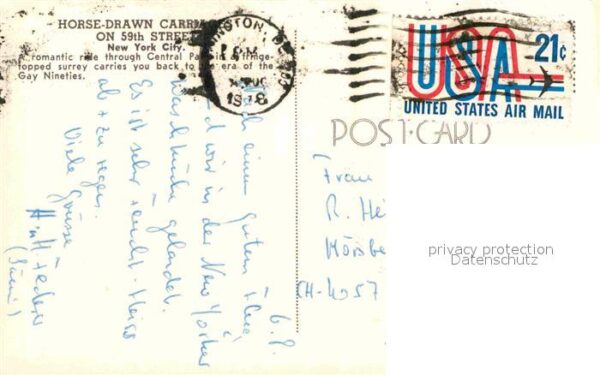 HORSE-DRAWN CARRIA
ON 59th STREET
New York City.
A romantic ride through Central Park in a fringe-
topped surrey carries you back to the era of the
Gay Nineties.
1978
USA 21c
UNITED STATES AIR MAIL
POST CARD
6.8.
einem guten
wir in der New Yorker
Waschküche gelandet.
Es ist sehr feucht-heiss
ab + zu regen.
Viele Grüsse
Frau
R. He
CH-4057
privacy protection
Datenschutz